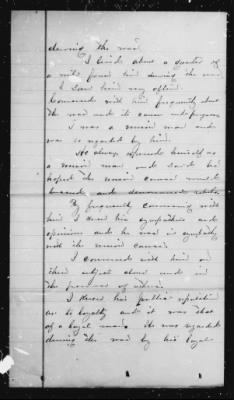 during the war.
I lived about a quarter of
a mile from him during the war
I saw him very often.
Conversed with him frequently about
the war and its cause and progress.
I was a union man and
was so regarded by him.
He always professed himself as
a union man and said he
hoped the union cause would
succeed and
By frequently conversing with
him I knew his sympathies and
opinions and he was in sympathy
with the union cause.
I conversed with him on
this subject alone and in
the presence of others.
I knew his public reputation
as to loyalty and it was that
of a loyal man. He was regarded
during the war by his loyal